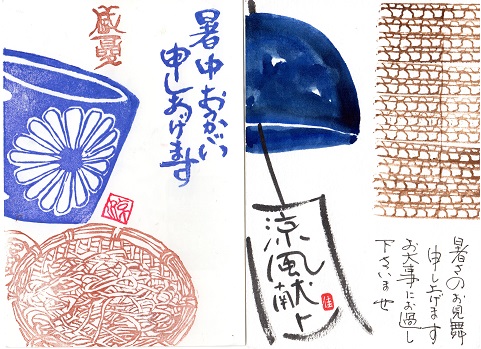 盛夏
暑中おうかがい
申しあげます
涼風献上
佳
暑さのお見舞
申し上げます
お大事にお過し
下さいませ